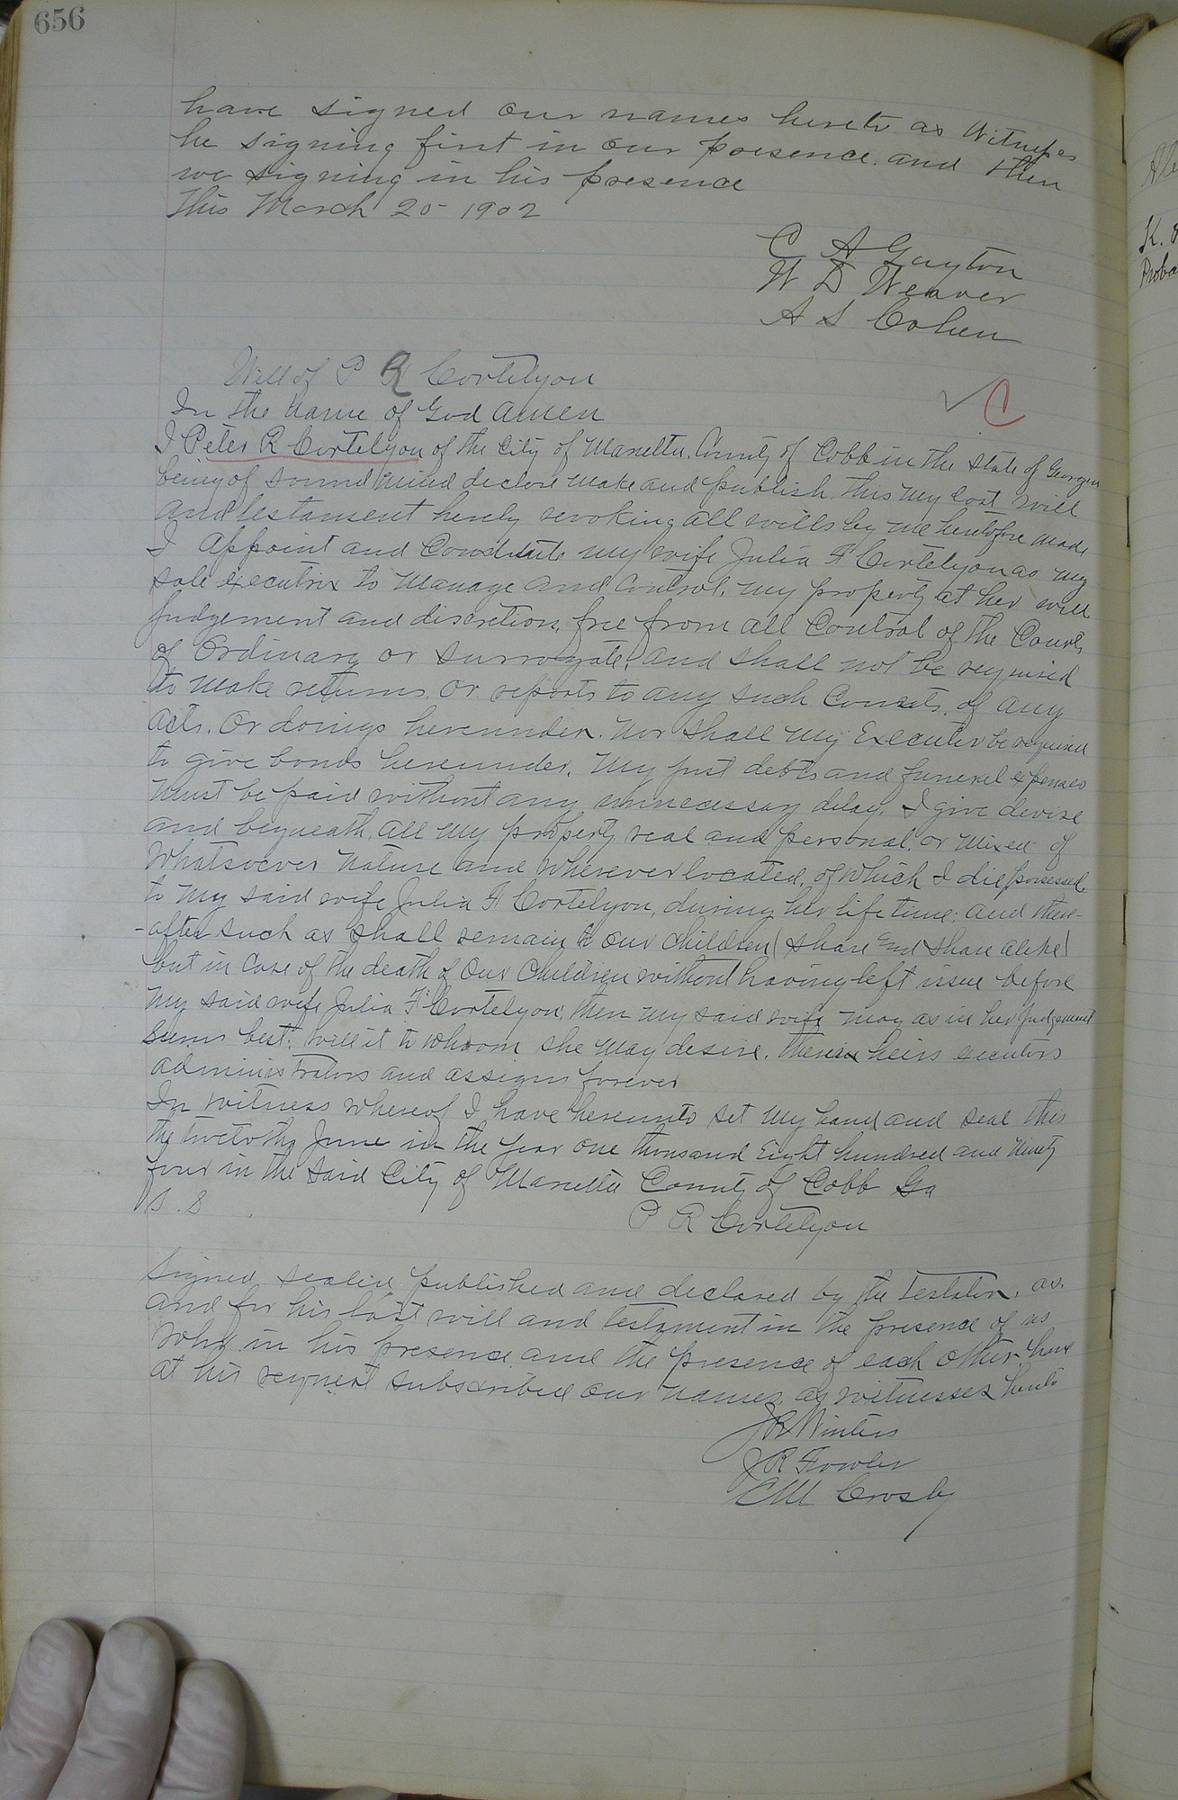 656
have signed our names hereto as Witnesses
he signing first in our presence. and then
we signing in his presence
This March 20 - 1902
C A Guyton
W D Weaver
A S Cohen
Will of P R Cortelyou
C
In the name of God amen
I Peter R Cortelyou of the City of Marietta, County of Cobb in the State of Georgia
being of sound mind declare make and publish this my last will
and testament hereby revoking all wills by me heretofore made
I appoint and Constitute my wife Julia F Cortelyou as my
sole executrix to manage and control, my property at her will
judgement and discretion, free from all Control of the Courts
of Ordinary or surrogate, and shall not be required
to make returns. or reports to any such Courts. of any
acts. or doings hereunder. nor shall my Executor be required
to give bonds hereunder. My just debts and funeral expenses
must be paid without any unnecessary delay. I give devise
and bequeath. all my property real and personal. or mixed of
Whatsoever nature and wherever located, of which I die possessed
to my said wife Julia F Cortelyou, during her life time; and there-
-after such as shall remain to our children (share and share alike)
but in case of the death of our Children without having left issue before
my said wife Julia F Cortelyou, then my said wife may as in her judgement
seems best: will it to whoom she may desire. heirs executors
administrators and assigns forever
In witness whereof I have hereunto set my hand and seal this
the June in the year one thousand Eight hundred and ninety
four in the said City of Marietta County of Cobb Ga
P R Cortelyou
Signed sealed published and declared by the Testator, as.
and for his last will and testament in the presence of us
who in his presence. and the presence of each other have
at his request subscribed our names, as witnesses hereto
J R Winters
J R Fowler
C M Crosby
K.
Proba